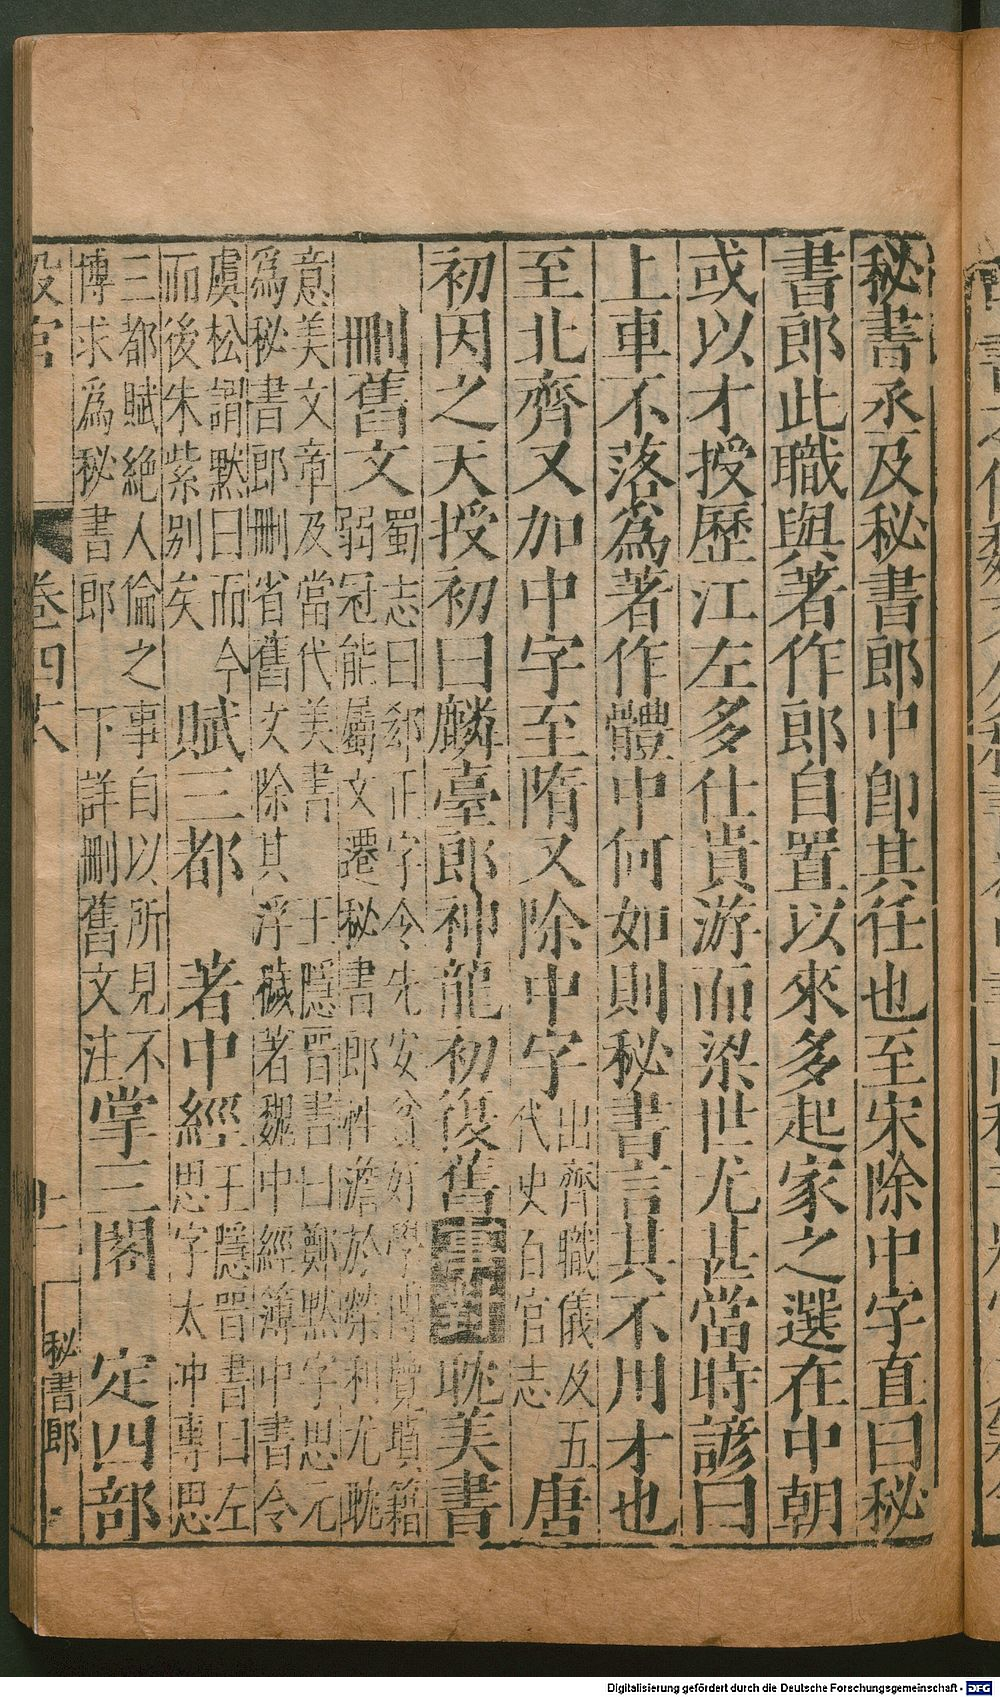 秘書丞及秘書郎中卽其任也至宋除中字直曰秘
書郎此職與著作郎自置以來多起家之選在中朝
或以才授歷江左多仕貴游而梁世尤甚當時諺曰
上車不落爲著作體中何如則秘書言其不用才也
至北齊又加中字至隋又除中字
出齊職儀及五
代史百官志
唐
初因之天授初曰麟臺郎神龍初復舊
事對
耽美書
刪舊文
蜀志曰郤正字令先安貧好學博覽墳籍
弱冠能屬文遷秘書郎性澹於榮利尤耽
意美文章及當代美書
王隱晉書曰鄭默字思元
爲秘書郎刪省舊文除其浮穢著魏中經簿中書令
虞松謂默曰而今
而後朱紫别矣
賦三都
著中經
王隱晉書曰左
思字太冲專思
三都賦絶人倫之事自以所見不
博求爲秘書郎
下詳刪舊文注
掌三閣
定四部
設官
卷四六
十一
秘書郎
Digitalisierung gefördert durch die Deutsche Forschungsgemeinschaft - DFG